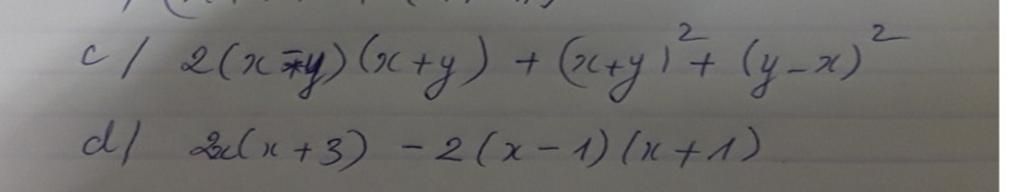 c/ 2(x-y)(x+y) + (x+y)² + (y-x)²
d/ 2x(x+3) - 2(x-1)(x+1)